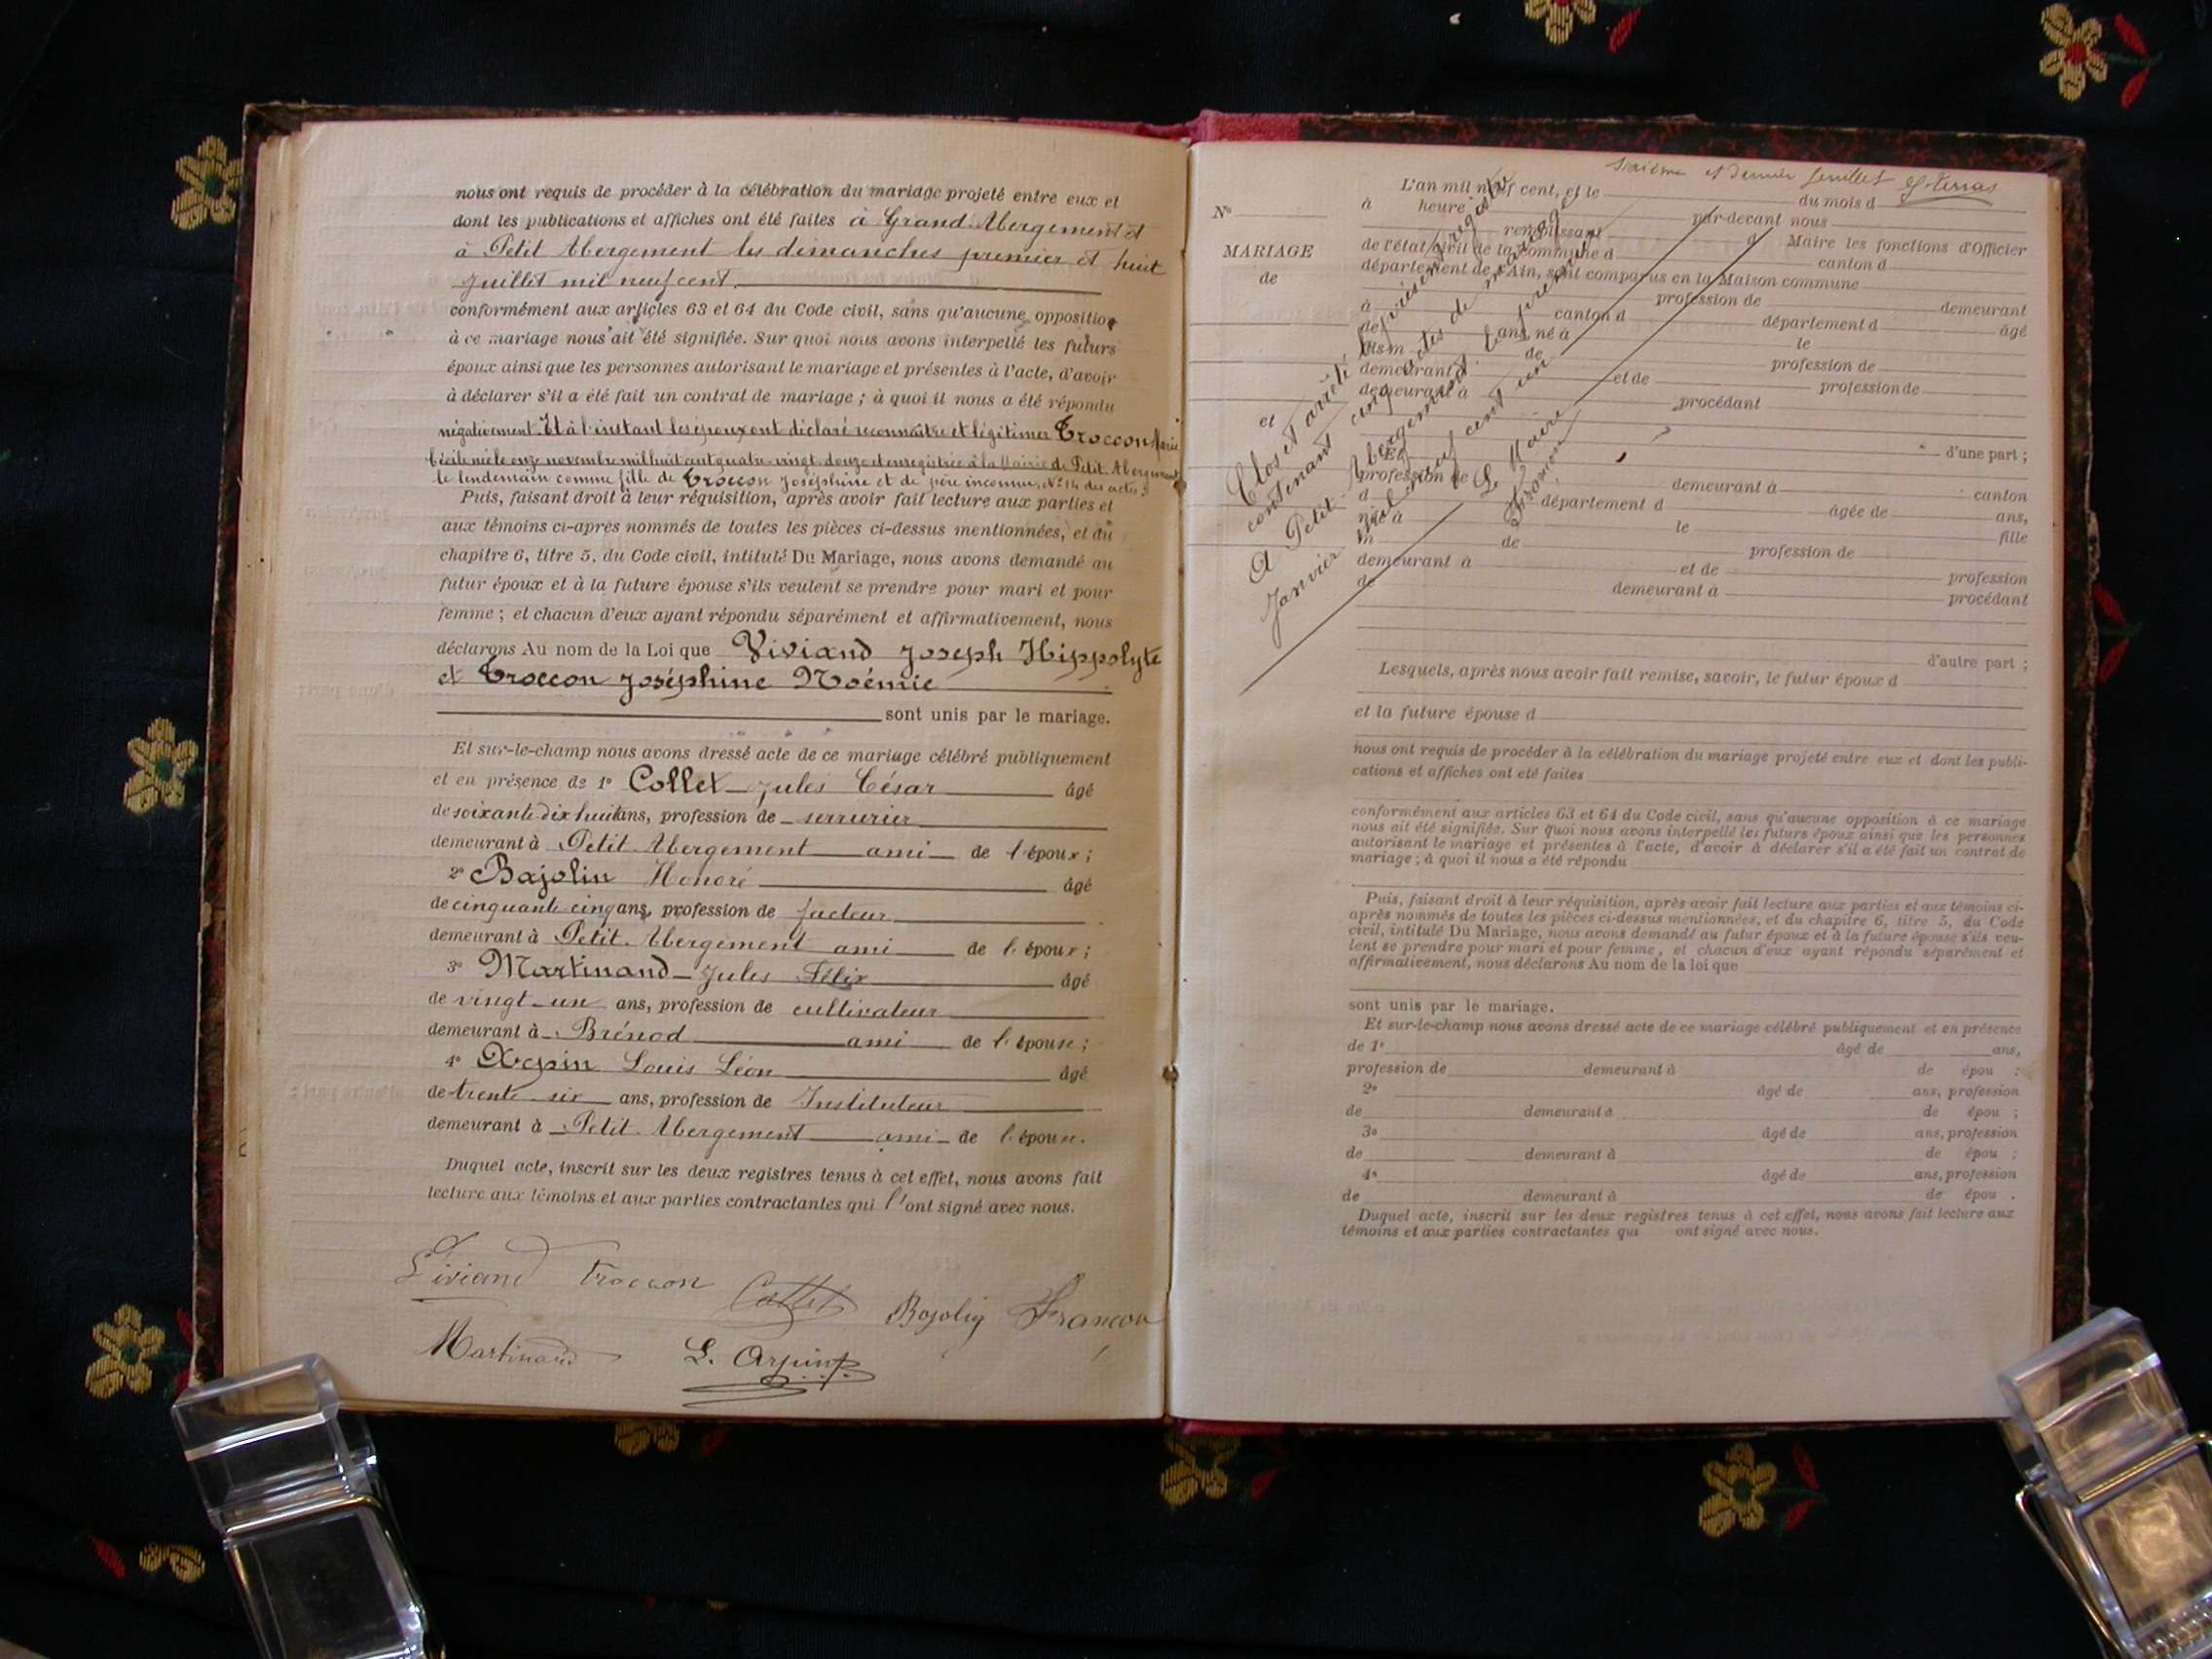 nous ont requis de procéder à la célébration du mariage projeté entre eux et
dont les publications et affiches ont été faites à Grand-Abergement et
à Petit Abergement les dimanches premier et huit
Juillet mil neuf cent.
conformément aux articles 63 et 64 du Code civil, sans qu'aucune opposition
à ce mariage nous ait été signifiée. Sur quoi nous avons interpellé les futurs
époux ainsi que les personnes autorisant le mariage et présentes à l'acte, d'avoir
à déclarer s'il a été fait un contrat de mariage ; à quoi il nous a été répondu
négativement. Et à l'instant les époux ont déclaré reconnaître et légitimer Troccon Marie
Cécile née le onze novembre mil huit cent quatre-vingt-douze et enregistrée à la Mairie de Petit-Abergement
le lendemain comme fille de Troccon Joséphine et de père inconnu, N° 14 des actes ;
Puis, faisant droit à leur réquisition, après avoir fait lecture aux parties et
aux témoins ci-après nommés de toutes les pièces ci-dessus mentionnées, et du
chapitre 6, titre 5, du Code civil, intitulé Du Mariage, nous avons demandé au
futur époux et à la future épouse s'ils veulent se prendre pour mari et pour
femme ; et chacun d'eux ayant répondu séparément et affirmativement, nous
déclarons Au nom de la Loi que Viviand Joseph Hippolyte
et Troccon Joséphine Noémie
sont unis par le mariage.
Et sur-le-champ nous avons dressé acte de ce mariage célébré publiquement
et en présence de 1° Collet Jules César âgé
de soixante-dix huit ans, profession de serrurier
demeurant à Petit-Abergement ami de l'époux ;
2° Bajolin Honoré âgé
de cinquante-cinq ans, profession de facteur
demeurant à Petit-Abergement ami de l'époux ;
3° Martinand Jules Félix âgé
de vingt-un ans, profession de cultivateur
demeurant à Brénod ami de l'épouse ;
4° Arpin Louis Léon âgé
de trente-six ans, profession de Instituteur
demeurant à Petit-Abergement ami de l'épouse.
Duquel acte, inscrit sur les deux registres tenus à cet effet, nous avons fait
lecture aux témoins et aux parties contractantes qui l'ont signé avec nous.
Viviand Troccon Collet Bajolin Françon
Martinand L. Arpin
Seizième et dernier feuillet
L'an mil neuf cent, et le du mois d
N° à heure par-devant nous
remplissant d Maire les fonctions d'Officier
MARIAGE de l'état civil de la commune d canton d
de département de l'Ain, sont comparus en la Maison commune
profession de demeurant
à canton d département d âgé
de ans, né à le
fils m de profession de
demeurant à et de profession de
demeurant à procédant
et
d'une part ;
Et
profession de demeurant à canton
d département d âgée de ans,
née à le fille
m de profession de
demeurant à et de profession
de demeurant à procédant
d'autre part ;
Clos et arrêté le présent registre
contenant cinq actes de mariage.
A Petit-Abergement le premier
Janvier mil neuf cent un
Le Maire
Françon
Lesquels, après nous avoir fait remise, savoir, le futur époux d
et la future épouse d
nous ont requis de procéder à la célébration du mariage projeté entre eux et dont les publi-
cations et affiches ont été faites
conformément aux articles 63 et 64 du Code civil, sans qu'aucune opposition à ce mariage
nous ait été signifiée. Sur quoi nous avons interpellé les futurs époux ainsi que les personnes
autorisant le mariage et présentes à l'acte, d'avoir à déclarer s'il a été fait un contrat de
mariage ; à quoi il nous a été répondu
Puis, faisant droit à leur réquisition, après avoir fait lecture aux parties et aux témoins ci-
après nommés de toutes les pièces ci-dessus mentionnées, et du chapitre 6, titre 5, du Code
civil, intitulé Du Mariage, nous avons demandé au futur époux et à la future épouse s'ils veu-
lent se prendre pour mari et pour femme, et chacun d'eux ayant répondu séparément et
affirmativement, nous déclarons Au nom de la loi que
sont unis par le mariage.
Et sur-le-champ nous avons dressé acte de ce mariage célébré publiquement et en présence
de 1° âgé de ans,
profession de demeurant à de épou ;
2° âgé de ans, profession
de demeurant à de épou ;
3° âgé de ans, profession
de demeurant à de épou ;
4° âgé de ans, profession
de demeurant à de épou .
Duquel acte, inscrit sur les deux registres tenus à cet effet, nous avons fait lecture aux
témoins et aux parties contractantes qui ont signé avec nous.